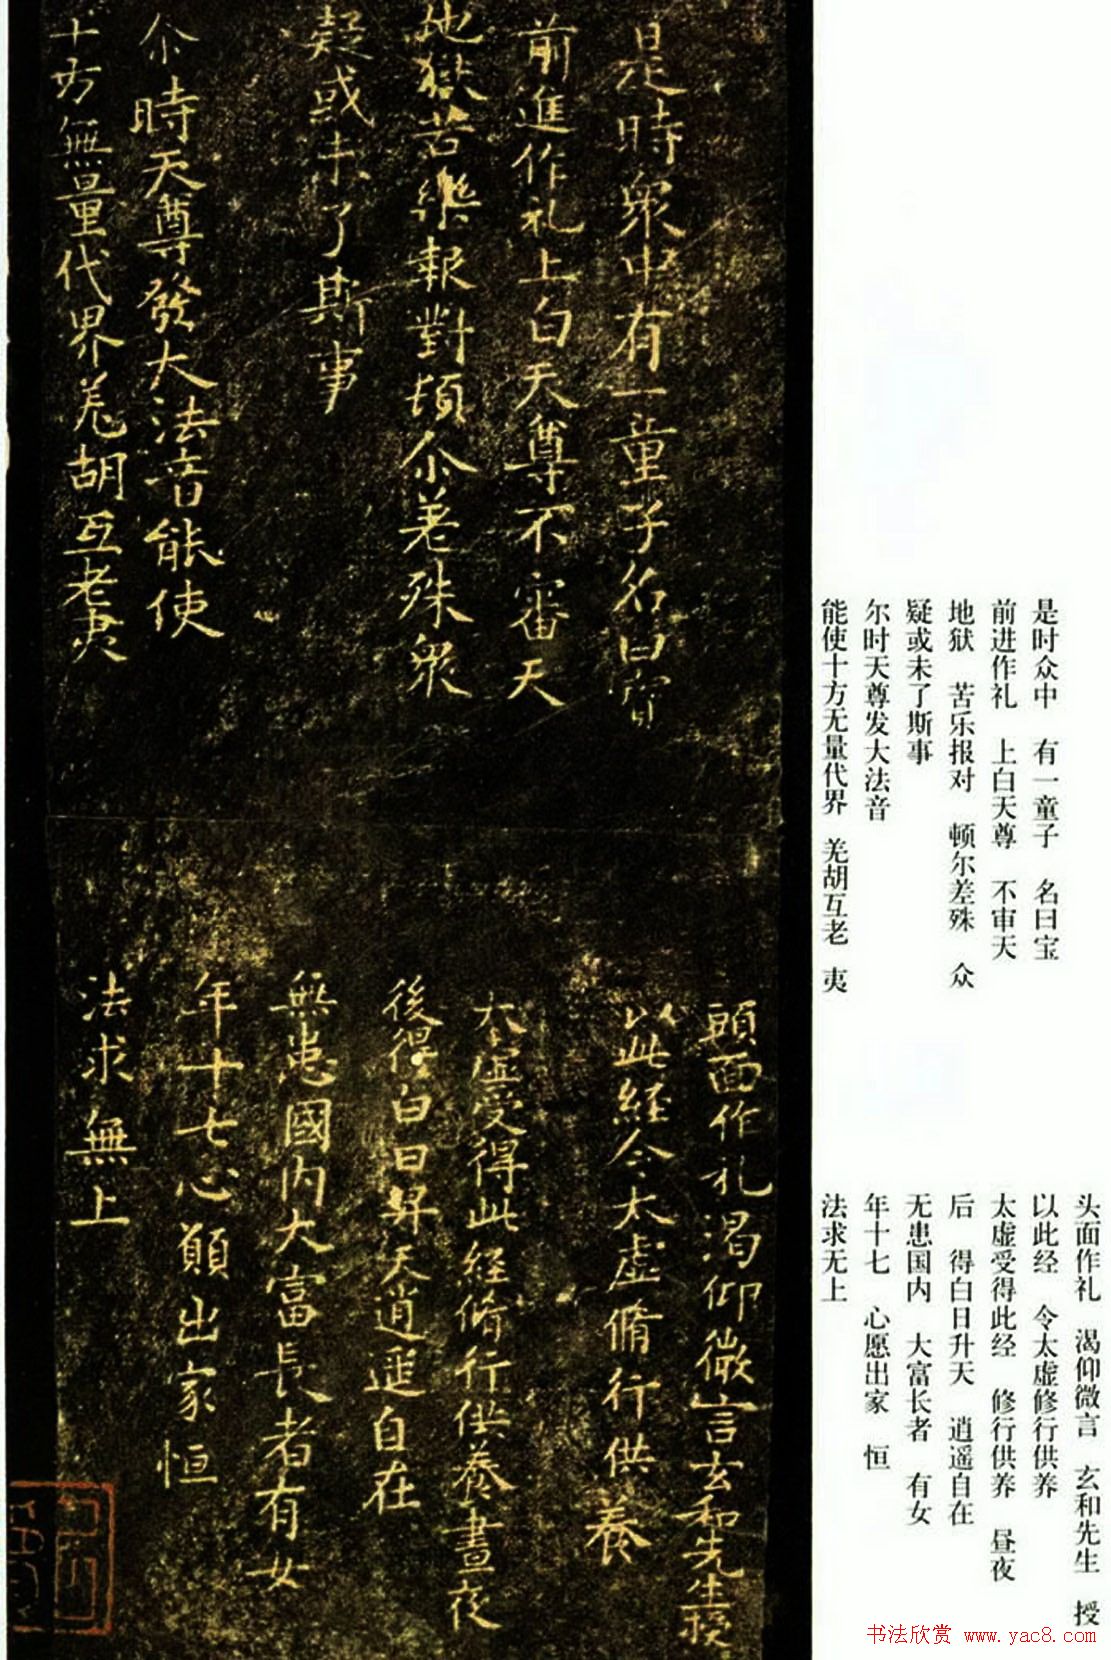 是時衆中有一童子名曰寶
前進作礼上白天尊不審天
地獄苦樂報對頓尒差殊衆
疑或未了斯事
尒時天尊發大法音能使
十方無量代界羌胡互老夷
頭面作礼渴仰微言玄和先生授
以此経令太虛脩行供養
太虛受得此経脩行供養晝夜
後得白日昇天逍遥自在
無患國内大富長者有女
年十七心願出家恒
法求無上
是时众中　有一童子　名曰宝
前进作礼　上白天尊　不审天
地狱　苦乐报对　顿尔差殊　众
疑或未了斯事
尔时天尊发大法音
能使十方无量代界　羌胡互老　夷
头面作礼　渴仰微言　玄和先生　授
以此经　令太虚修行供养
太虚受得此经　修行供养　昼夜
后　得白日升天　逍遥自在
无患国内　大富长者　有女
年十七　心愿出家　恒
法求无上
书法欣赏 www.yac8.com